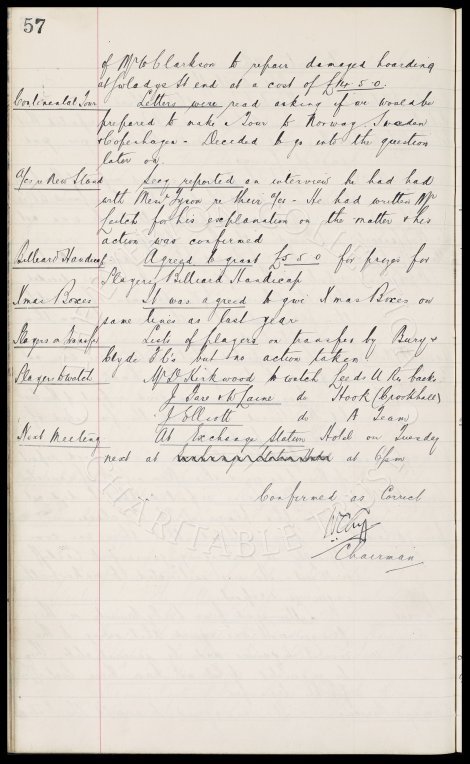 57
of Mr W Clarkson to repair damaged hoarding
at Gwladys St end at a cost of £14.5.0.
Continental Tour Letters were read asking if we would be
prepared to make a Tour to Norway Sweden
& Copenhagen - Decided to go into the question
later on.
a/cs re New Stand Secy reported an interview he had had
with Messrs Tyson re their a/cs - He had written Mr
Leitch for his explanation on the matter & his
action was confirmed
Billiard Handicap Agreed to grant £5.5.0 for prizes for
Players Billiard Handicap
Xmas Boxes It was agreed to give Xmas Boxes on
same lines as last year
Players on transfer Lists of players on transfer by Bury &
Clyde FC's but no action taken
Players to watch Mr D. Kirkwood to watch Leeds U Res backs
J Sare & W Laine do Hook (Crookhall)
J Elliott do A Team
Next Meeting At Exchange Station Hotel on Tuesday
next at at 6pm
Confirmed as Correct
Chairman
CHARITABLE